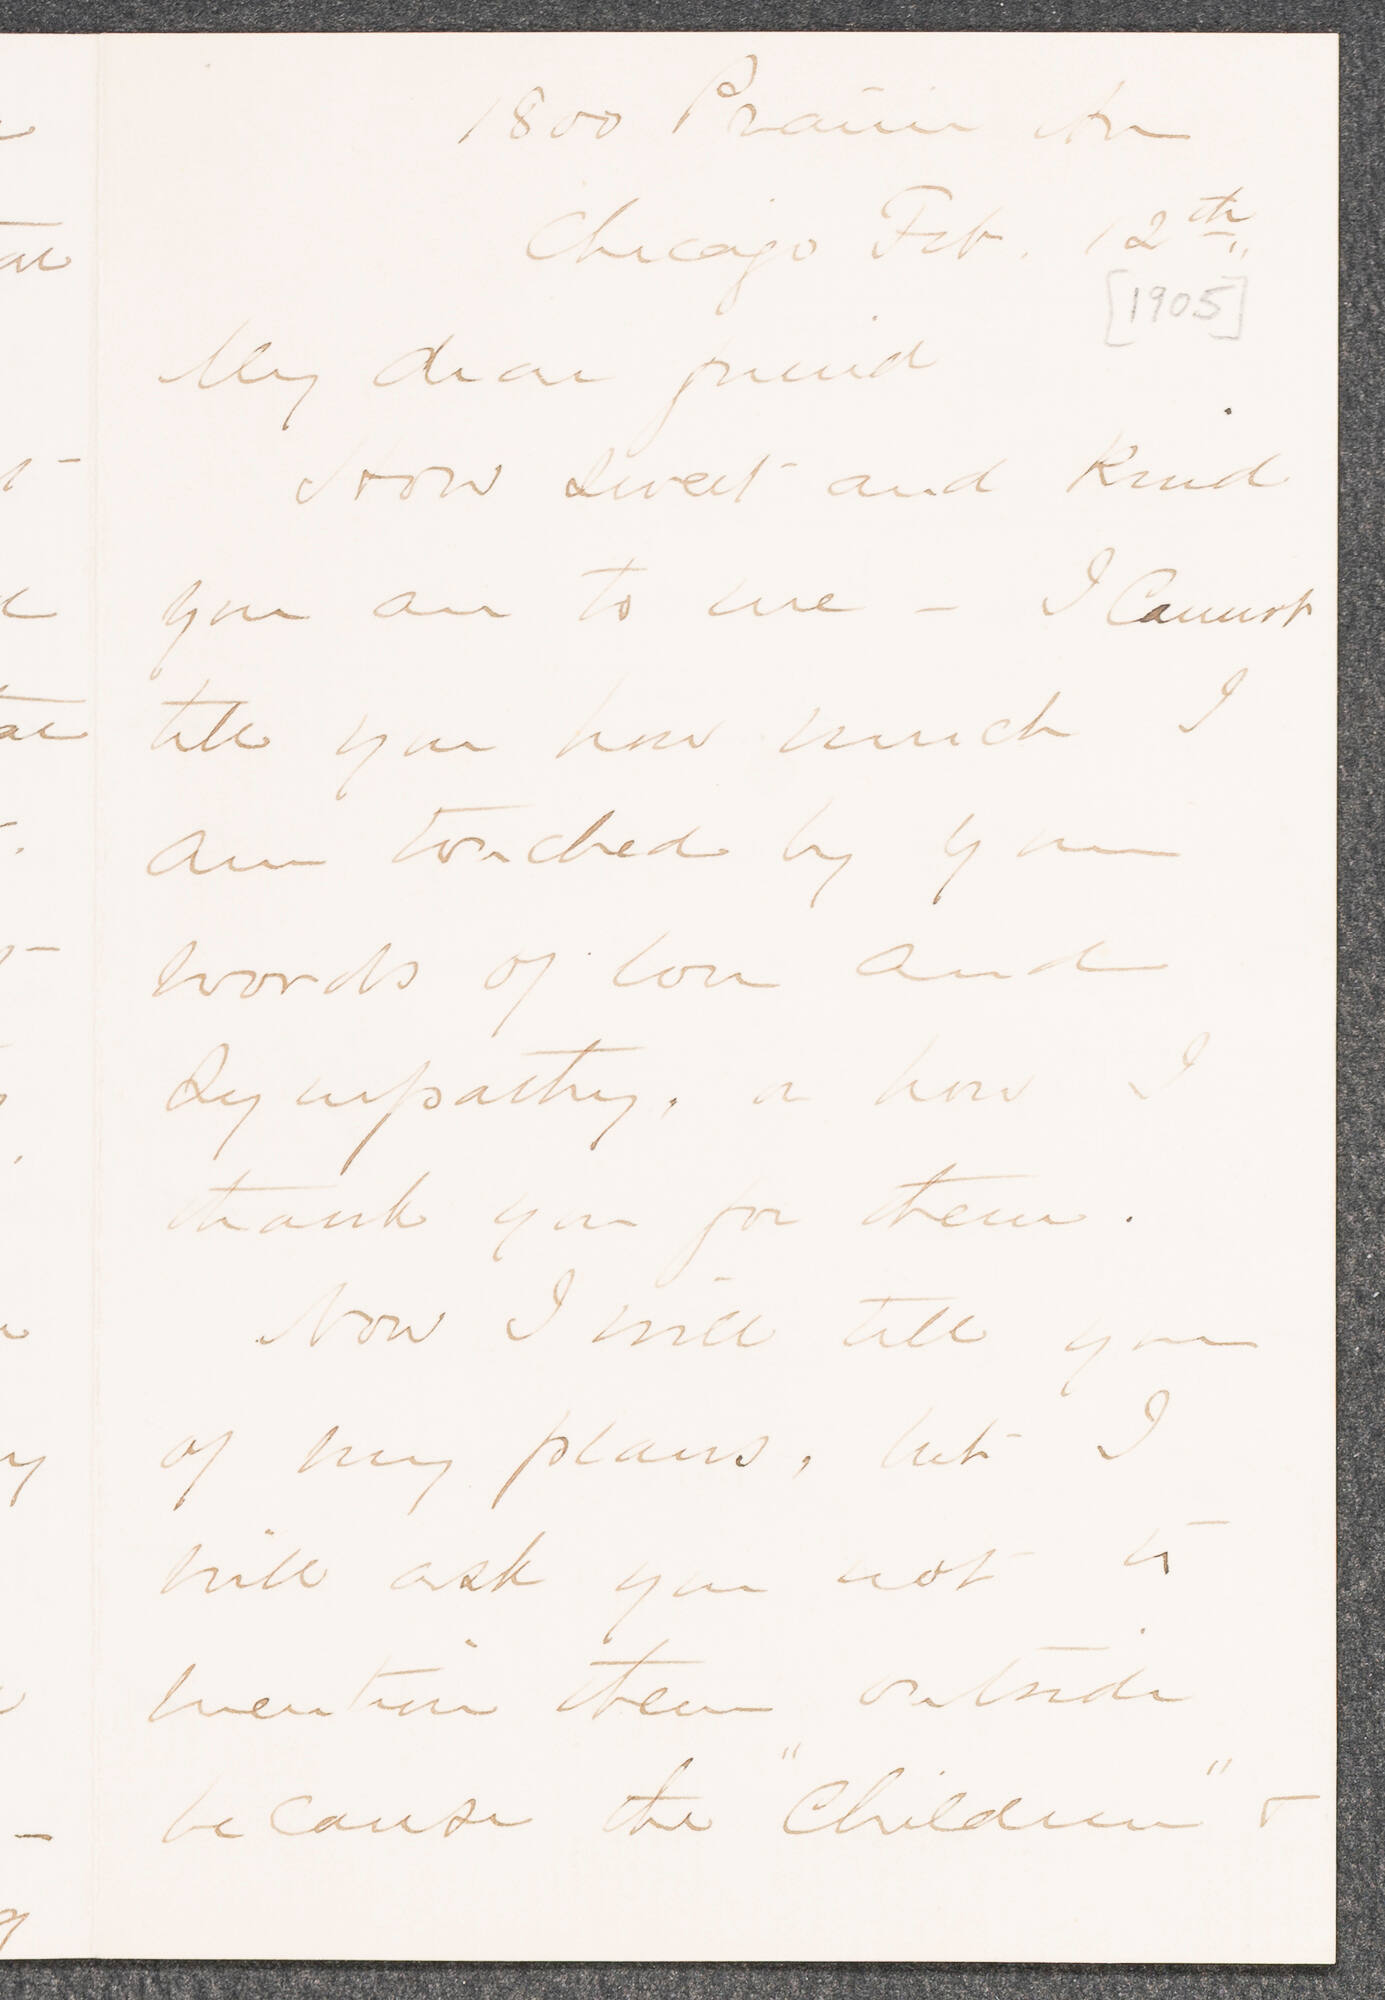 1800 Prairie Ave
Chicago Feb. 12th
[1905]
My dear friend
How sweet and kind
you are to me – I cannot
tell you how much I
am touched by your
words of love and
sympathy, or how I
thank you for them.
Now I will tell you
of my plans, but I
will ask you not to
mention them outside
because the "Children" &